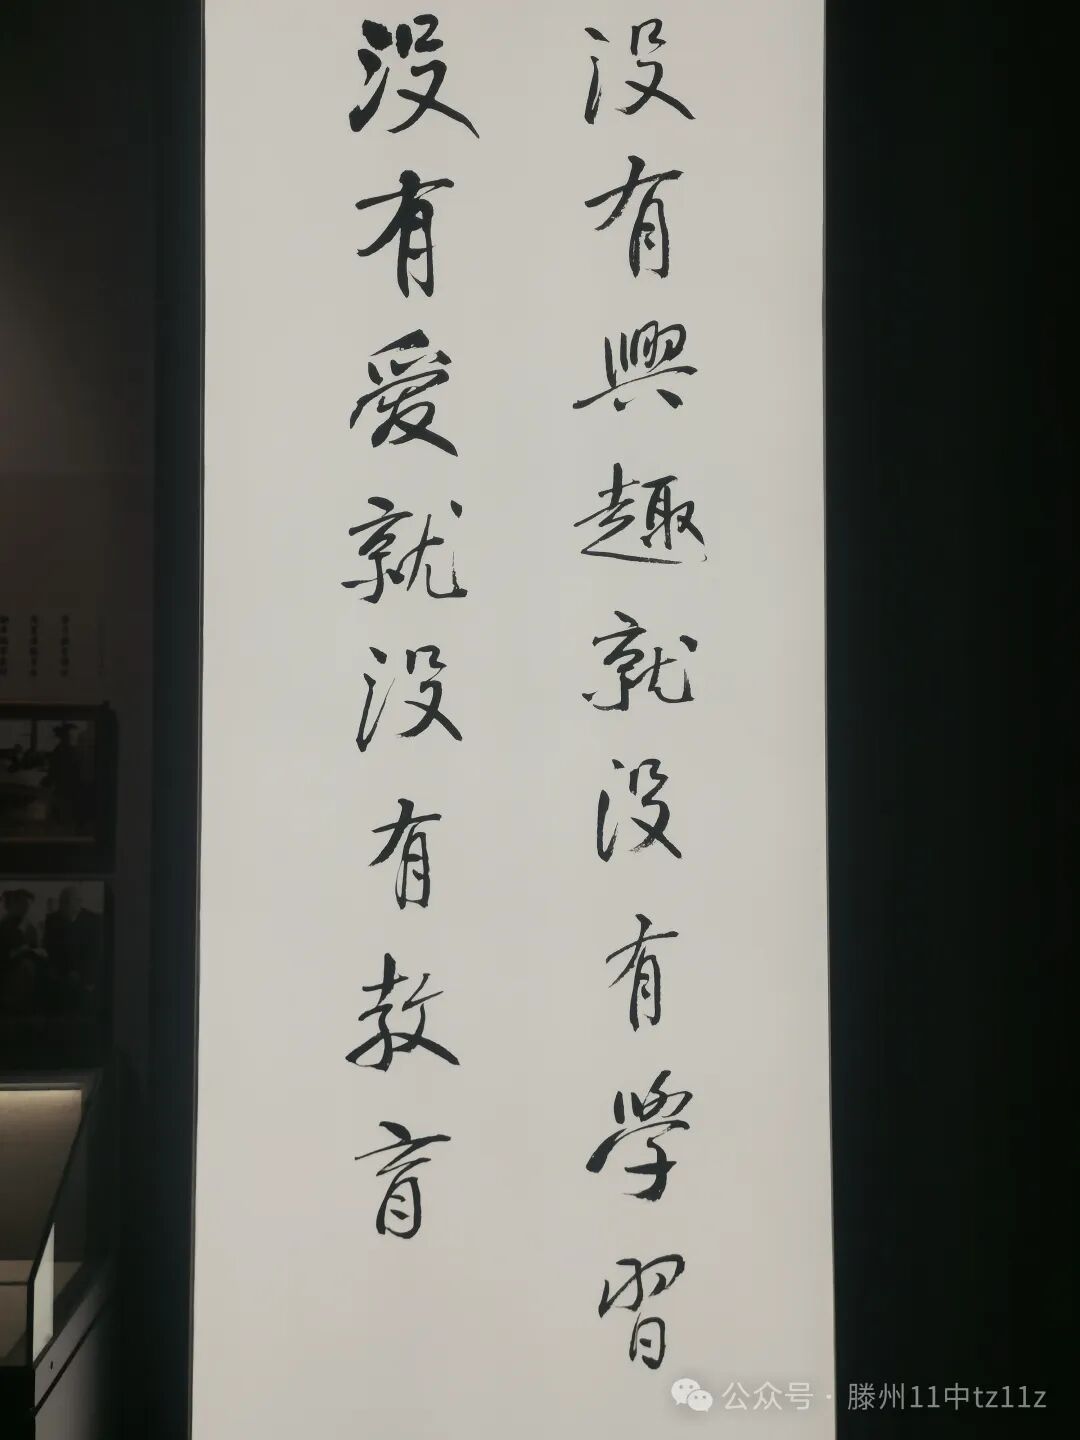 没有興趣就没有学習
没有愛就没有教育
公众号·滕州11中tz11z